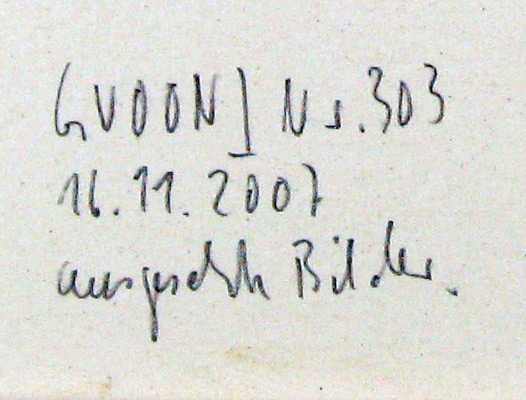 GVOON] Nr. 303
16.11.2007
Bilder.